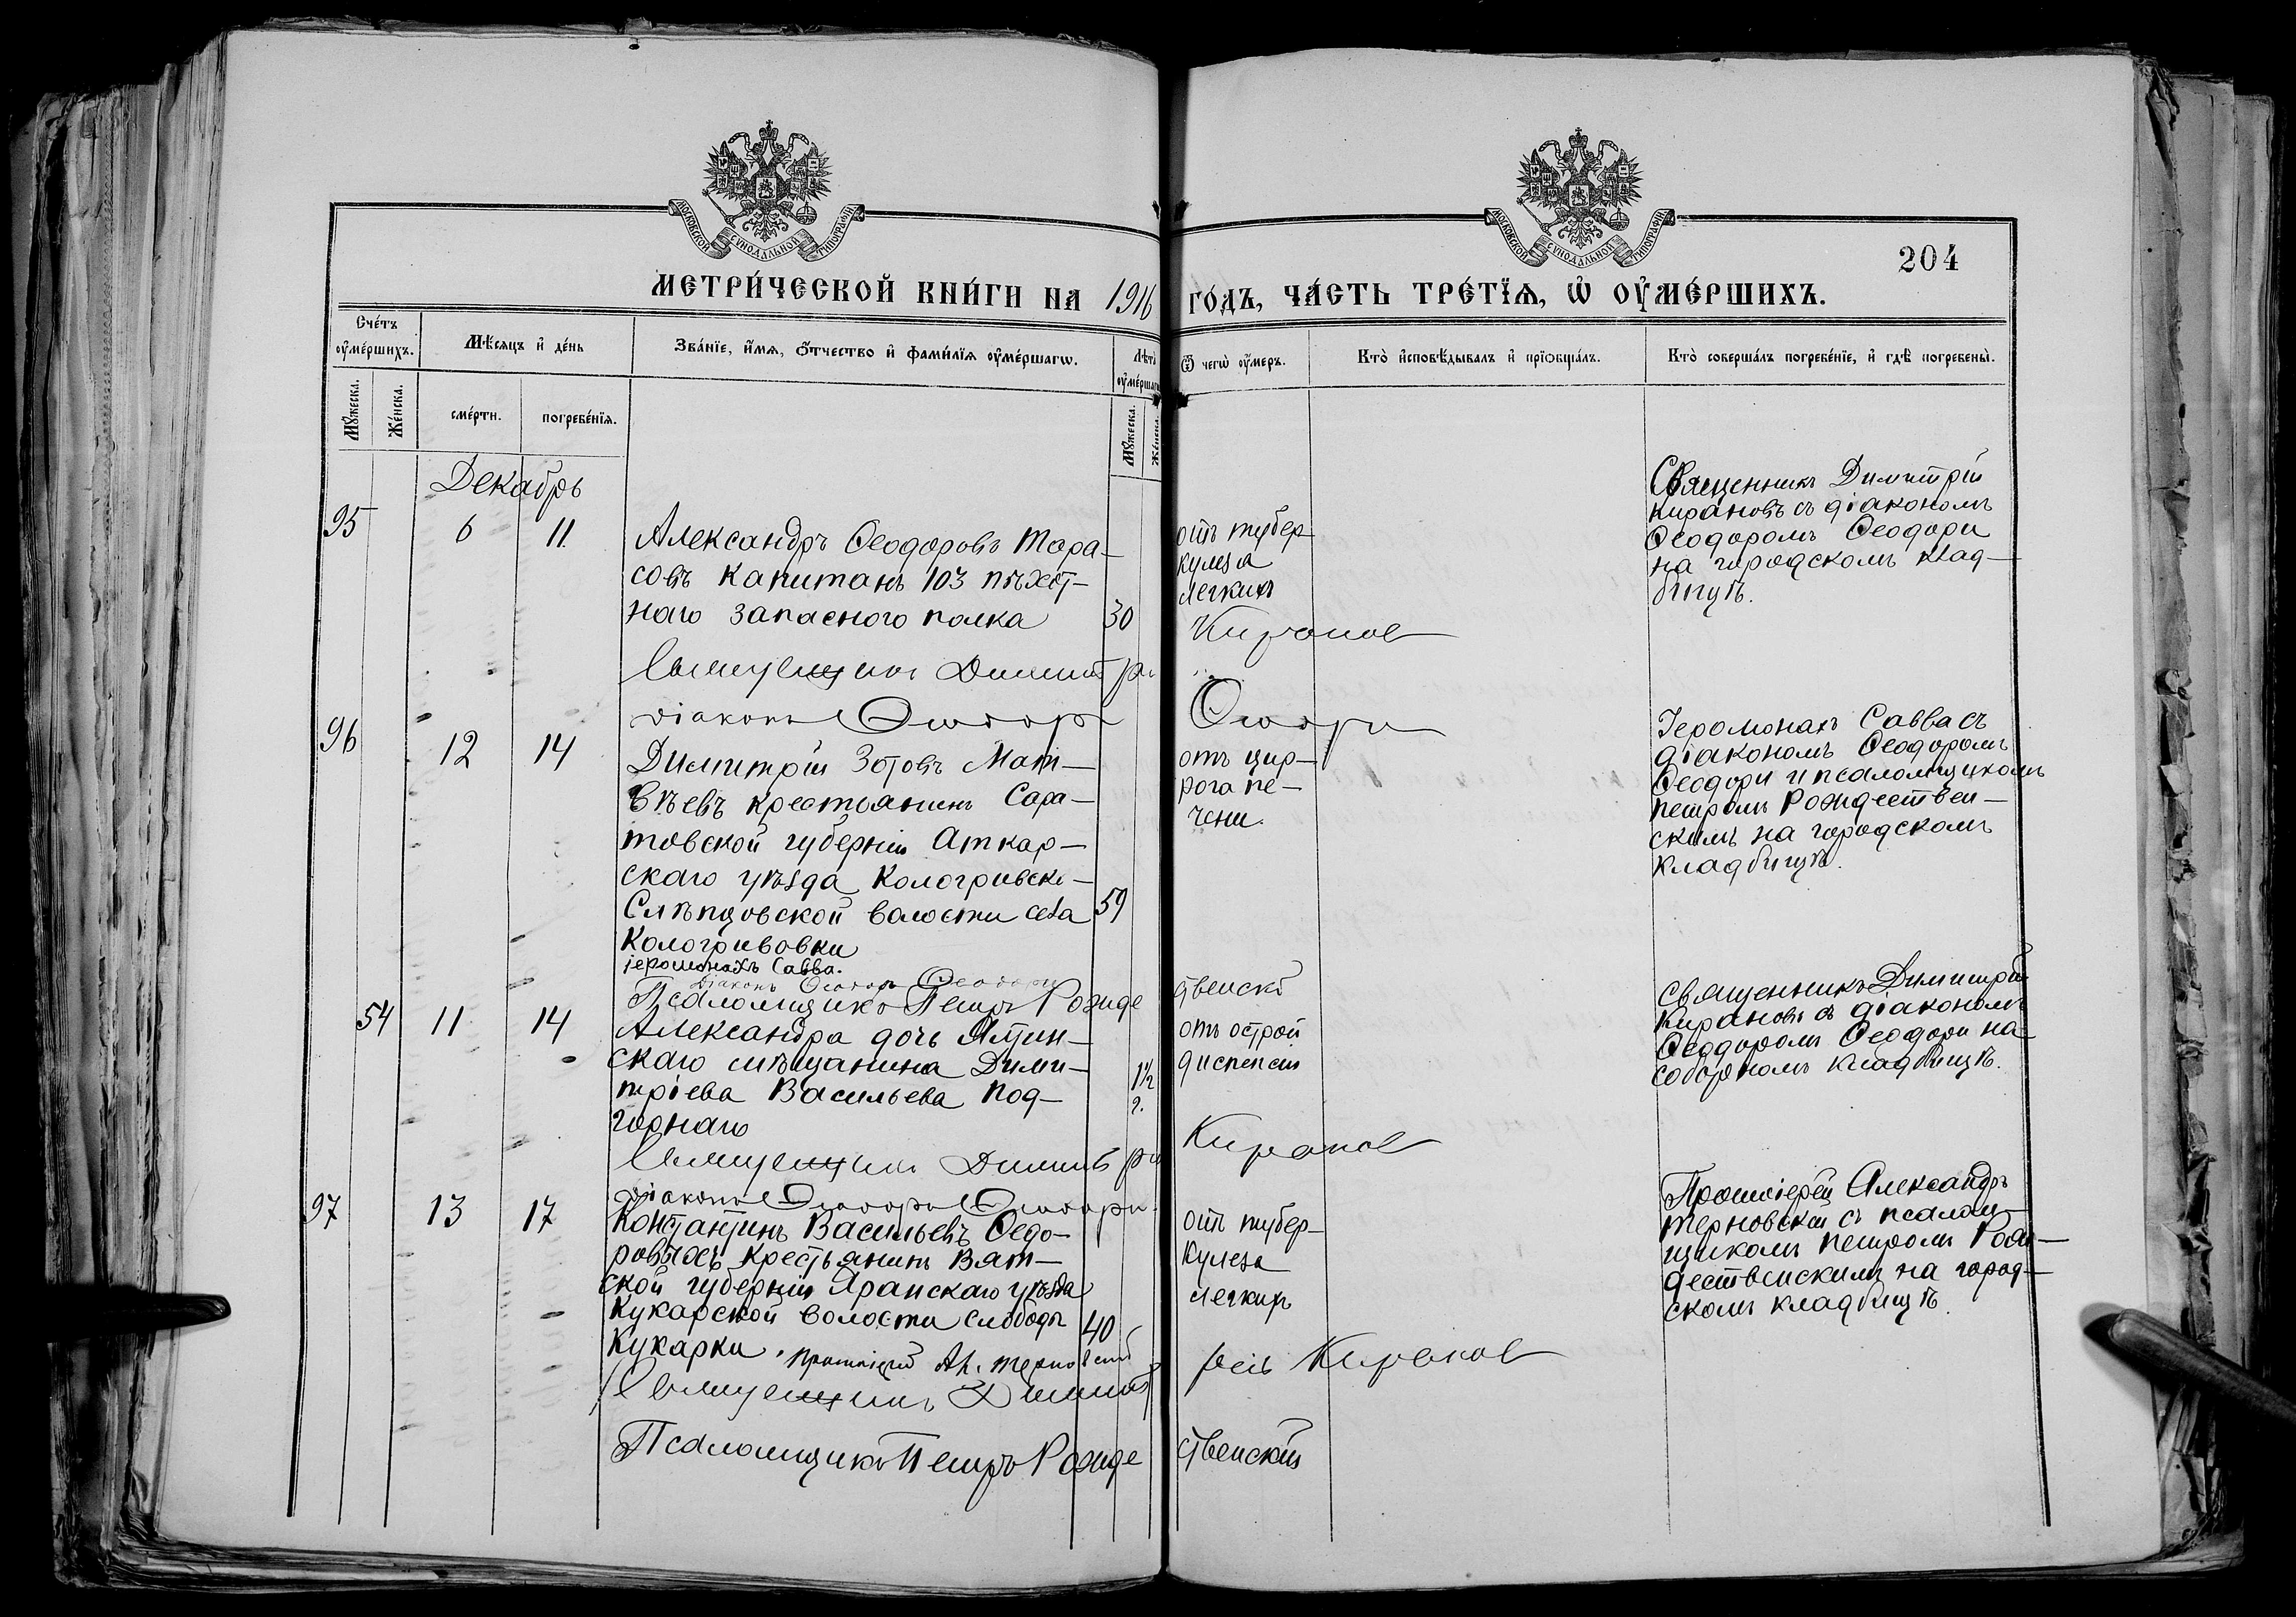 МОСКОВСКОЙ СѴНОДАЛЬНОЙ ТИПОГРАФІИ
МОСКОВСКОЙ СѴНОДАЛЬНОЙ ТИПОГРАФІИ
204
МЕТРИ́ЧЕСКОЙ КНИ́ГИ НА 1916 ГО́ДЪ, ЧА́СТЬ ТРЕ́ТЇѦ, Ѡ҆ ОУ҆МЕ́РШИХЪ.
Сче́тъ оу҆ме́ршихъ.
Мѣ́сяцъ и҆ де́нь
Зва́нїе, и҆́мѧ, ѻ҆́тчество и҆ фами́лїѧ оу҆ме́ршагѡ.
Лѣта̀ оу҆ме́ршагѡ
Ѿ чегѡ̀ оу҆́меръ.
Кто̀ и҆сповѣ́дывалъ и҆ прїѡбща́лъ.
Кто̀ соверша́лъ погребе́нїе, и҆ гдѣ̀ погребены̀.
Мꙋ́жеска.
Же́нска.
сме́рти.
погребе́нїѧ.
Мꙋ́жеска.
Же́нска.
Декабрь
95
6
11
Александръ Ѳеодоровъ Тара-
совъ капитанъ 103 пѣхот-
наго запасного полка
30
отъ тубер-
кулеза
легкихъ
Священникъ Димитрій
Кирановъ съ діакономъ
Ѳеодоромъ Ѳеодори
на городскомъ клад-
бищѣ.
Священникъ Димитрій Киранов
діаконъ Ѳеодоръ Ѳеодори
96
12
14
Димитрій Зотовъ Мат-
вѣевъ крестьянинъ Сара-
товской губерніи Аткар-
скаго уѣзда Кологривско-
Слѣпцовской волости села
Кологривовки
59
отъ цир-
роза пе-
чени.
Іеромонахъ Савва съ
діакономъ Ѳеодоромъ
Ѳеодори и псаломщикомъ
Петромъ Рождествен-
скимъ на городскомъ
кладбищѣ.
іеромонахъ Савва.
Діаконъ Ѳеодоръ Ѳеодори
Псаломщикъ Петръ Рождественскій
54
11
14
Александра дочь Ялтин-
скаго мѣщанина Дими-
тріева Васильева Под-
горнаго
1½
г.
отъ острой
диспепсіи
Священникъ Димитрій
Кирановъ съ діакономъ
Ѳеодоромъ Ѳеодори на
соборномъ кладбищѣ.
Священникъ Димитрій Киранов
діаконъ Ѳеодоръ Ѳеодори.
97
13
17
Константинъ Васильевъ Ѳедо-
ровыхъ крестьянинъ Вят-
ской губерніи Яранскаго уѣзда
Кукарской волости слободы
Кукарки.
40
отъ тубер-
кулеза
легкихъ
Протоіерей Александръ
Терновскій съ псалом-
щикомъ Петромъ Рож-
дественскимъ на город-
скомъ кладбищѣ.
Протоіерей Ал. Терновскій
Священникъ Димитрій Киранов
Псаломщикъ Петръ Рождественскій